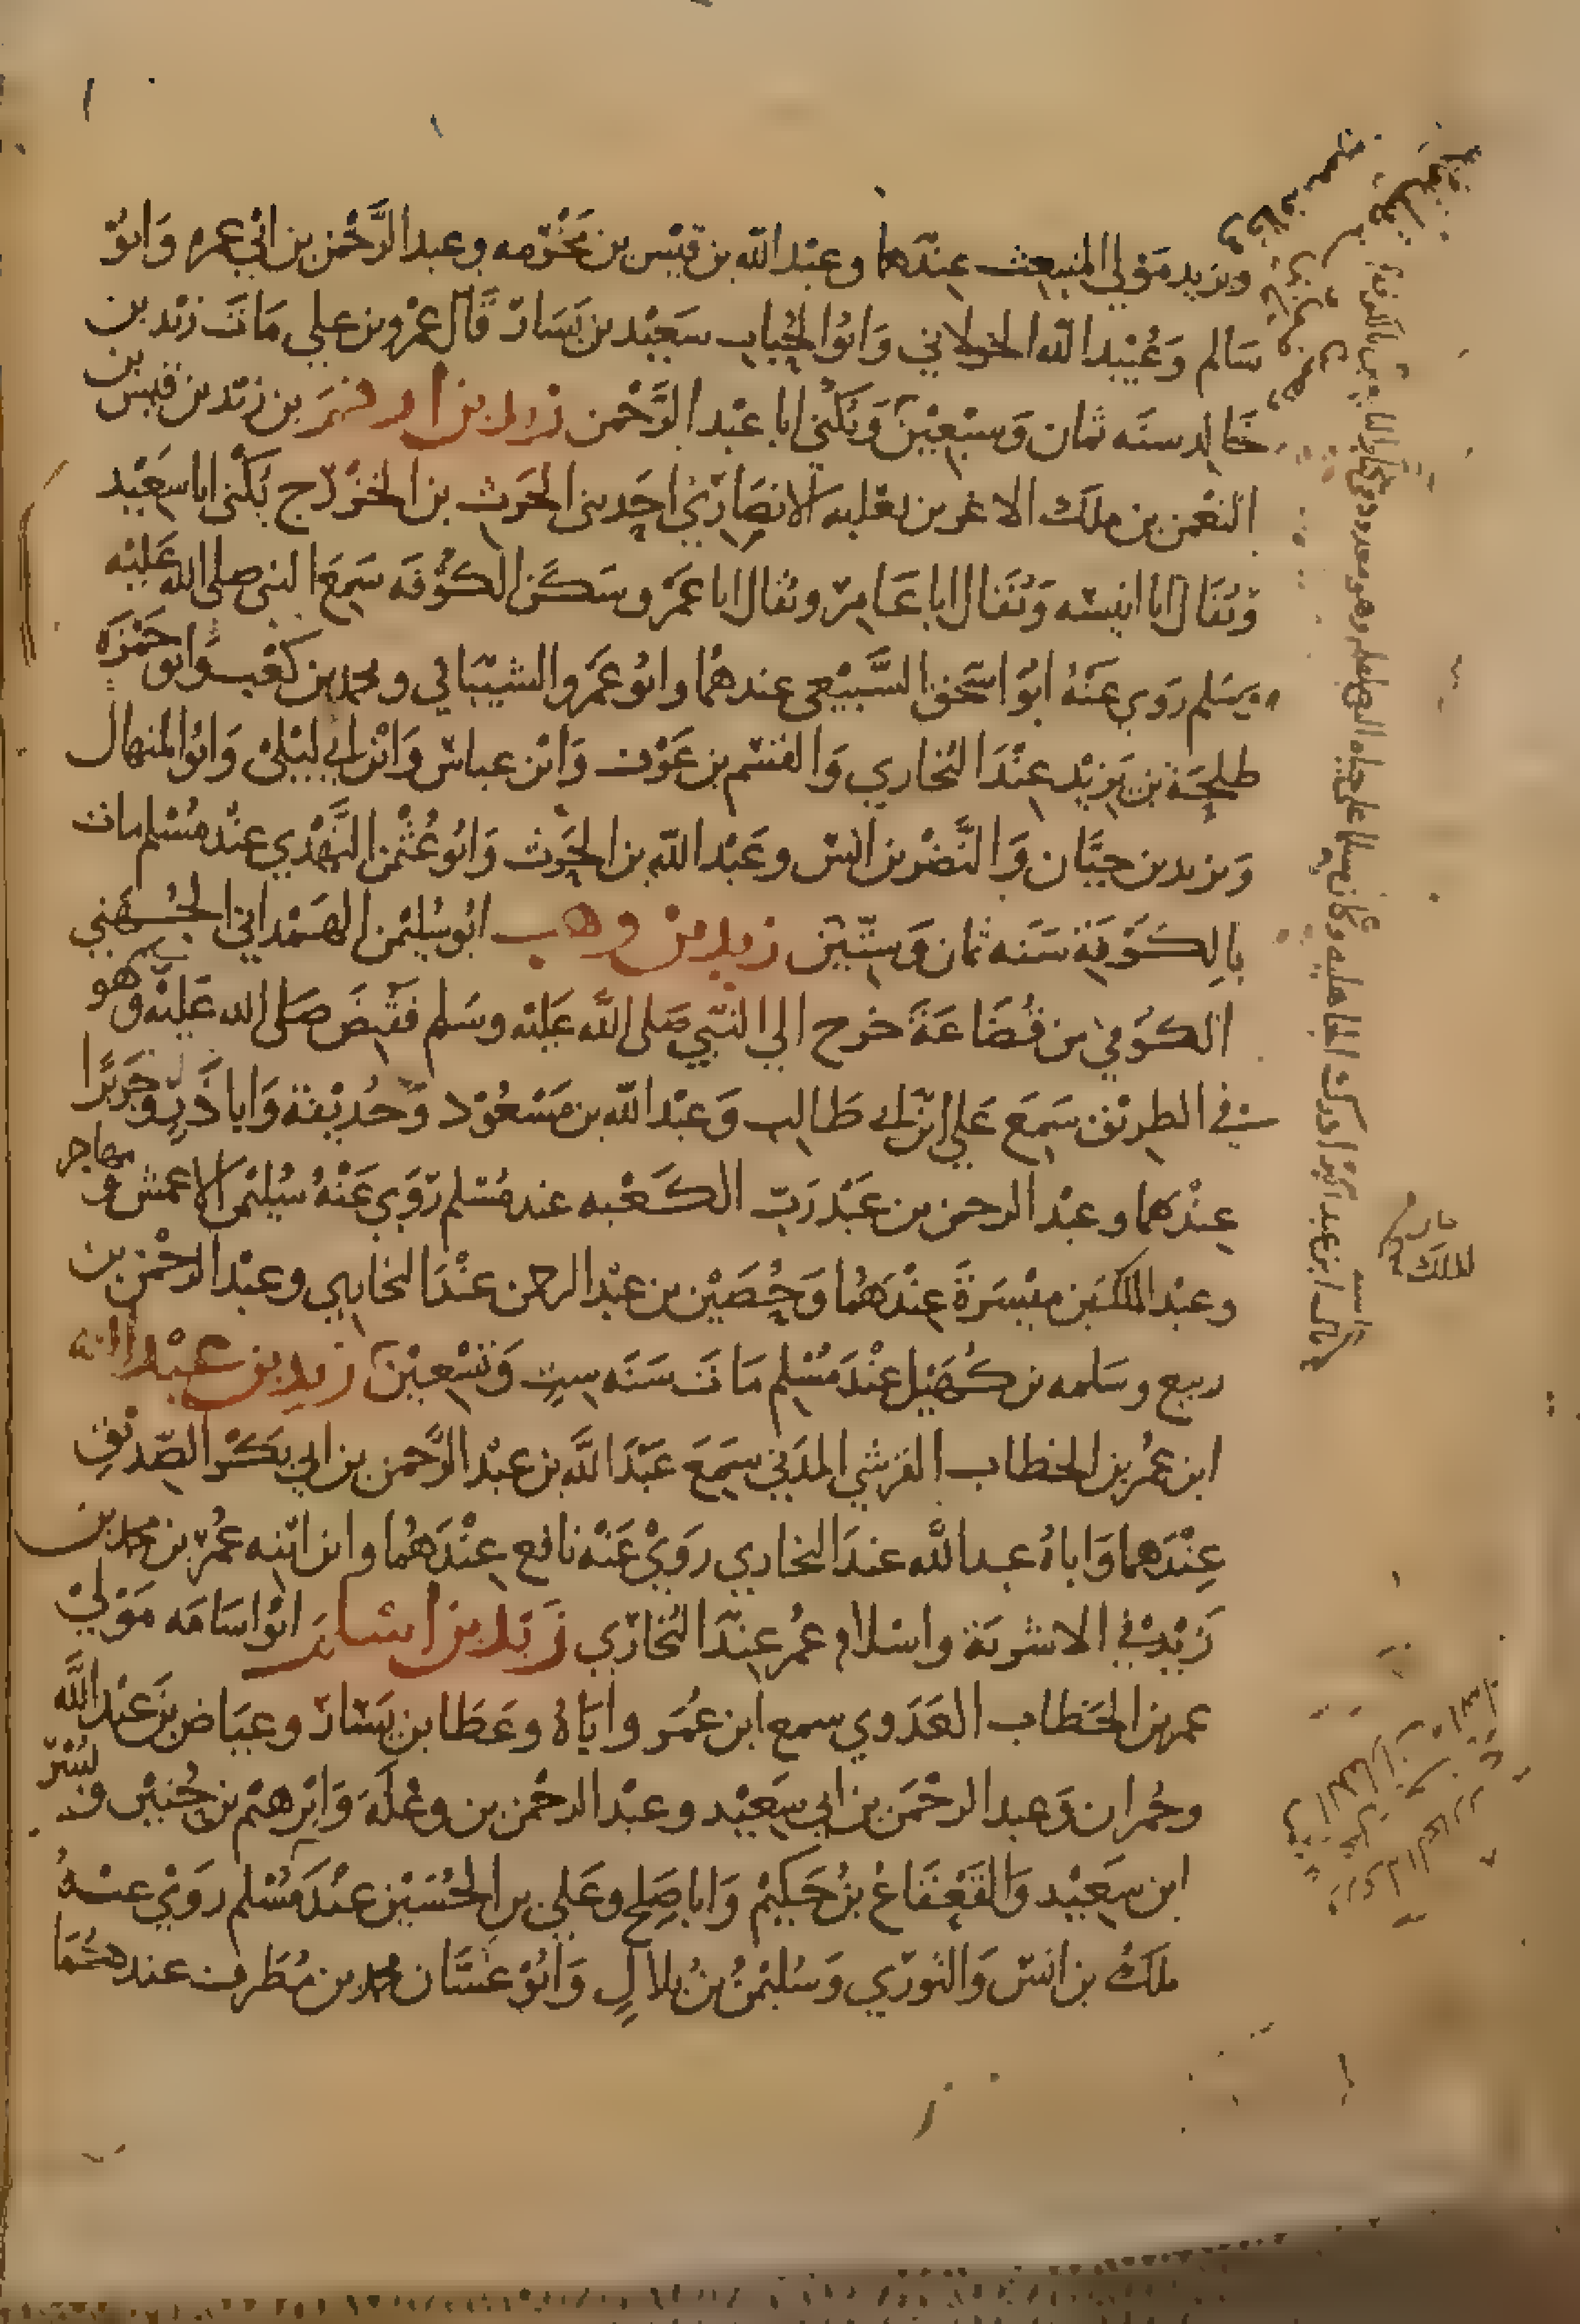 ويزيد مولي المنبعث عندهما وعبد الله بن قيس بن مخرمه وعبد الرحمن بن ابي عمره وابو
سالم وعبيد الله الخولاني وابوا الحباب سعيد بن يسار قال عمرو بن علي مات زيد بن
خالد سنه ثمان وسبعين ويكني ابا عبد الرحمن زيد بن ارقم بن زيد بن قيس بن
النعمن بن ملك الاغر بن ثعلبه الانصاري احد بني الحرث بن الخزرج يكني ابا سعيد
ويقال ابا انيسه ويقال ابا عامر ويقال ابا عمر وسكن الكوفه سمع النبي صلى الله عليه
وسلم روي عنه ابوا اسحق السبيعي عندهما وابو عمرو الشيباني ومحمد بن كعب وابو حمزه
طلحة بن يزيد عند البخاري والقسم بن عوف وابن عباس وابن ابي ليلي وابوا المنهال
ويزيد بن حيان والنضر بن انس وعبد الله بن الحرث وابو عثمن النهدي عند مسلم مات
بالكوفة سنه ثمان وستين زيد بن وهب ابو سليمن الهمداني الجهني
الكوفي من قضاعة خرج الي النبي صلى الله عليه وسلم فقبض صلى الله عليه وسلم وهو
في الطريق سمع علي ابن ابي طالب وعبد الله بن مسعود وحذيفة وابا ذر وجريرا
عندهما وعبد الرحمن بن عبد رب الكعبه عند مسلم روي عنه سليمن الاعمش ومهاجر
وعبد الملك بن ميسرة عندهما وحصين بن عبد الرحمن عند البخاري وعبد الرحمن بن
ربيع وسلمه بن كهيل عند مسلم مات سنه ست وتسعين زيد بن عبد الله
ابن عمر بن الخطاب القرشي المدني سمع عبد الله بن عبد الرحمن بن ابي بكر الصديق
عندهما واباه عبد الله عند البخاري روي عنه نافع عندهما وابن ابنه عمر بن محمد بن
زيد في الاشربة واسلام عمر عند البخاري زيد بن اسلم ابوا اسامه مولي
عمر بن الخطاب العدوي سمع ابن عمر واباه وعطا بن يسار وعياض بن عبد الله
وحمران وعبد الرحمن بن ابي سعيد وعبد الرحمن بن وعلة وابرهيم بن حنين وبسر
ابن سعيد والقعقاع بن حكيم وابا صلح وعلي بن الحسين عند مسلم روي عنه
ملك بن انس والثوري وسليمن بن بلال وابو غسان محمد بن مطرف عندهما